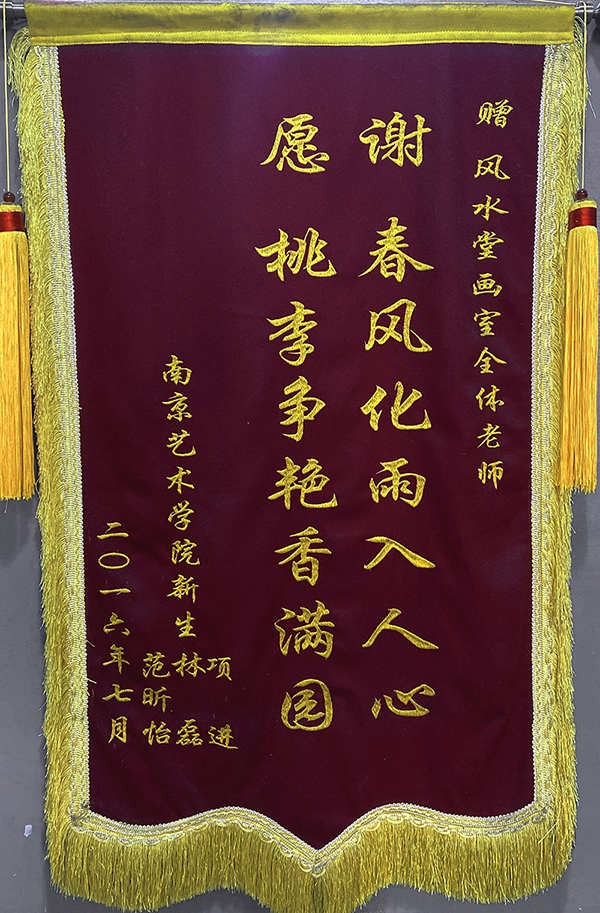 赠 风水堂画室全体老师
谢 春风化雨入人心
愿 桃李争艳香满园
南京艺术学院新生
项进
林磊
范昕怡
二〇一六年七月